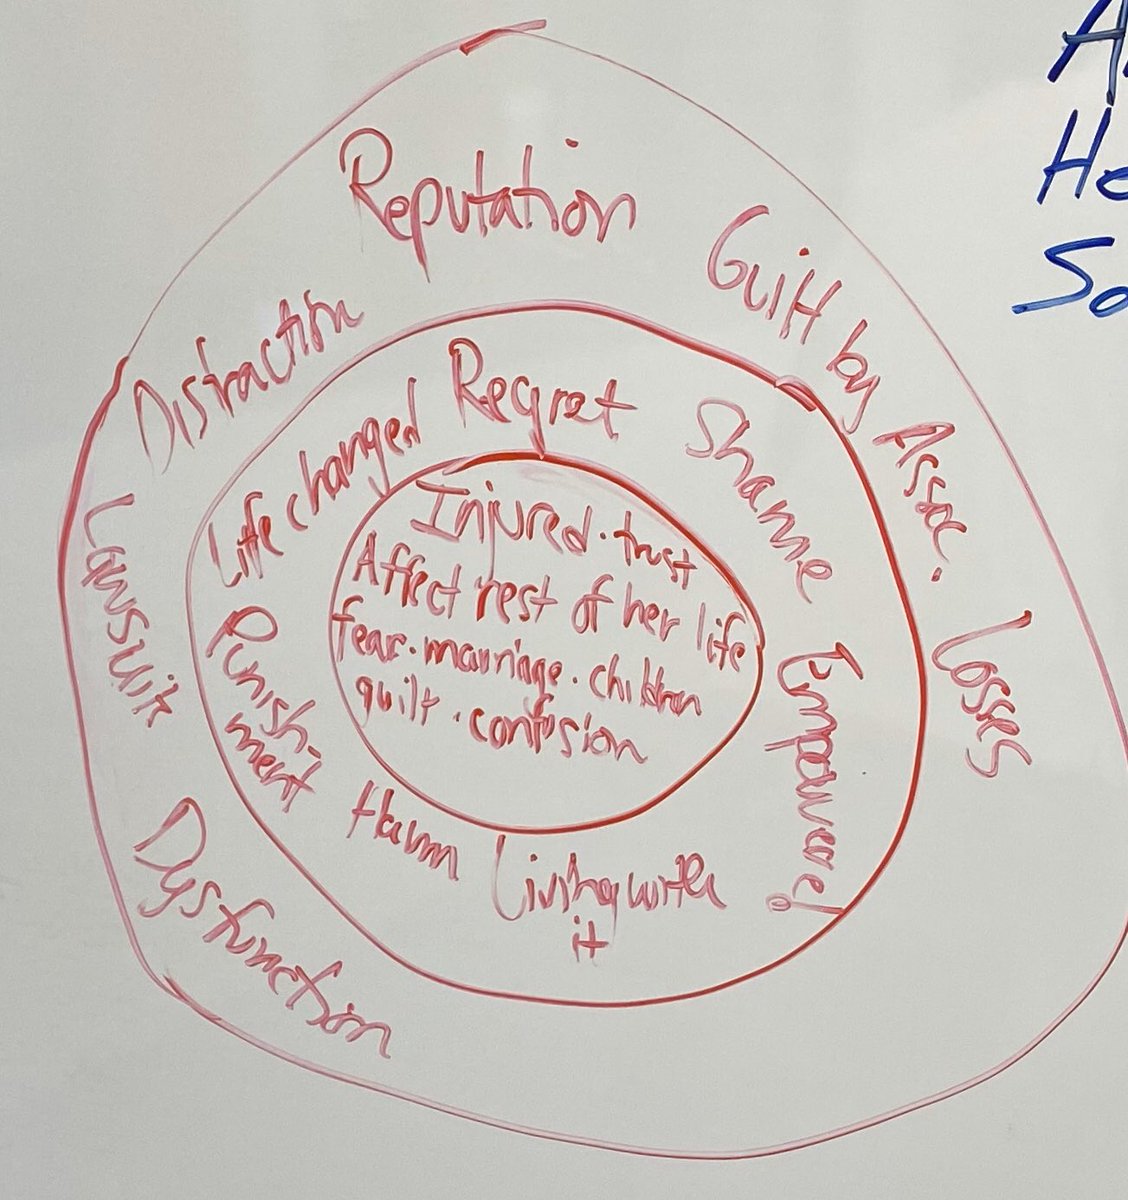 Reputation
Guilt by Assoc.
Losses
Distraction
Lawsuit
Dysfunction
Life changed
Regret
Shame
Empowered
Punish-
ment
Harm
Living with
it
Injured. trust
Affect rest of her life
fear. marriage. children
guilt. confusion
A
He
So